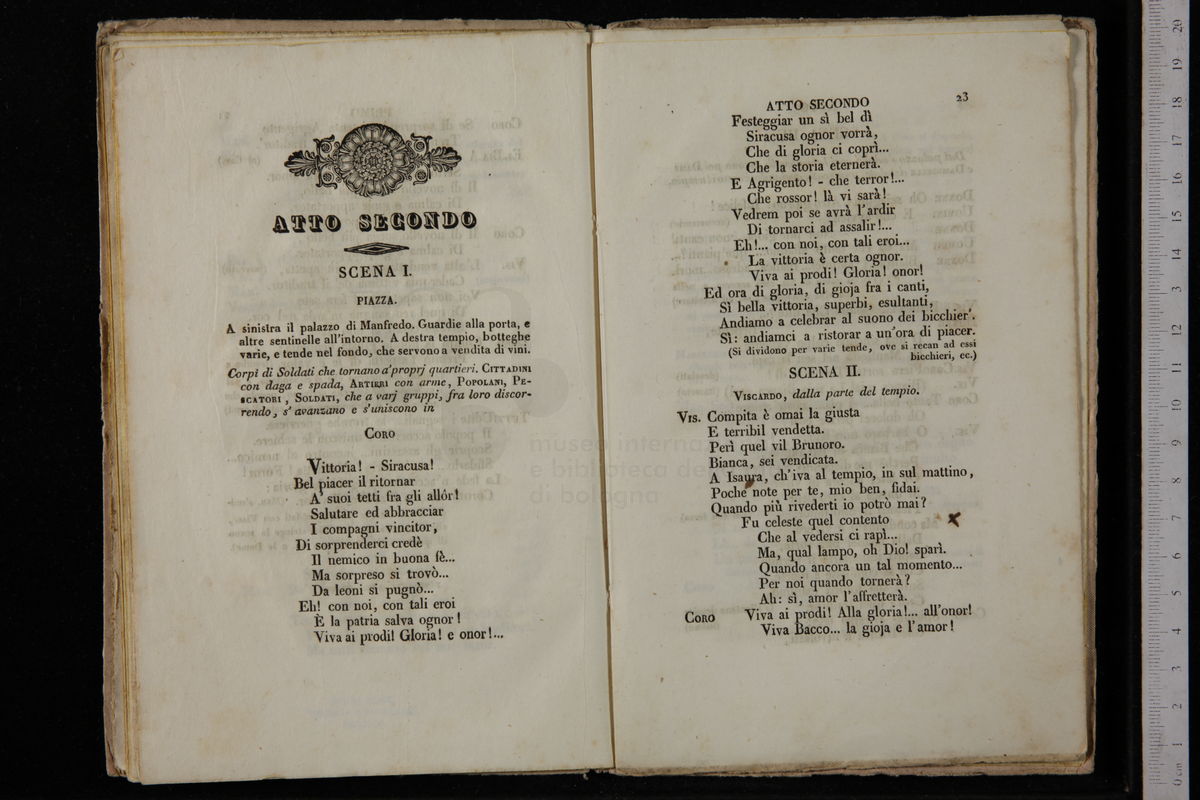 ATTO SECONDO
SCENA I.
PIAZZA.
A sinistra il palazzo di Manfredo. Guardie alla porta, e
altre sentinelle all'intorno. A destra tempio, botteghe
varie, e tende nel fondo, che servono a vendita di vini.
Corpi di Soldati che tornano a' proprj quartieri. CITTADINI
con daga e spada, ARTIERI con arme, POPOLANI, PE-
SCATORI, SOLDATI, che a varj gruppi, fra loro discor-
rendo, s' avanzano e s'uniscono in
CORO
Vittoria! - Siracusa!
Bel piacer il ritornar
A' suoi tetti fra gli allòr!
Salutare ed abbracciar
I compagni vincitor,
Di sorprenderci credè
Il nemico in buona fè...
Ma sorpreso si trovò...
Da leoni si pugnò...
Eh! con noi, con tali eroi
È la patria salva ognor!
Viva ai prodi! Gloria! e onor!...
ATTO SECONDO 23
Festeggiar un sì bel dì
Siracusa ognor vorrà,
Che di gloria ci coprì...
Che la storia eternerà.
E Agrigento! - che terror!...
Che rossor! là vi sarà!
Vedrem poi se avrà l'ardir
Di tornarci ad assalir!...
Eh!... con noi, con tali eroi...
La vittoria è certa ognor.
Viva ai prodi! Gloria! onor!
Ed ora di gloria, di gioja fra i canti,
Sì bella vittoria, superbi, esultanti,
Andiamo a celebrar al suono dei bicchier'.
Sì: andiamci a ristorar a un'ora di piacer.
(Si dividono per varie tende, ove si recan ad essi
bicchieri, ec.)
SCENA II.
VISCARDO, dalla parte del tempio.
VIS. Compita è omai la giusta
E terribil vendetta.
Perì quel vil Brunoro.
Bianca, sei vendicata.
A Isaura, ch'iva al tempio, in sul mattino,
Poche note per te, mio ben, fidai.
Quando più rivederti io potrò mai?
Fu celeste quel contento
Che al vedersi ci rapì...
Ma, qual lampo, oh Dio! sparì.
Quando ancora un tal momento...
Per noi quando tornerà?
Ah: sì, amor l'affretterà.
CORO Viva ai prodi! Alla gloria!... all'onor!
Viva Bacco... la gioja e l'amor!